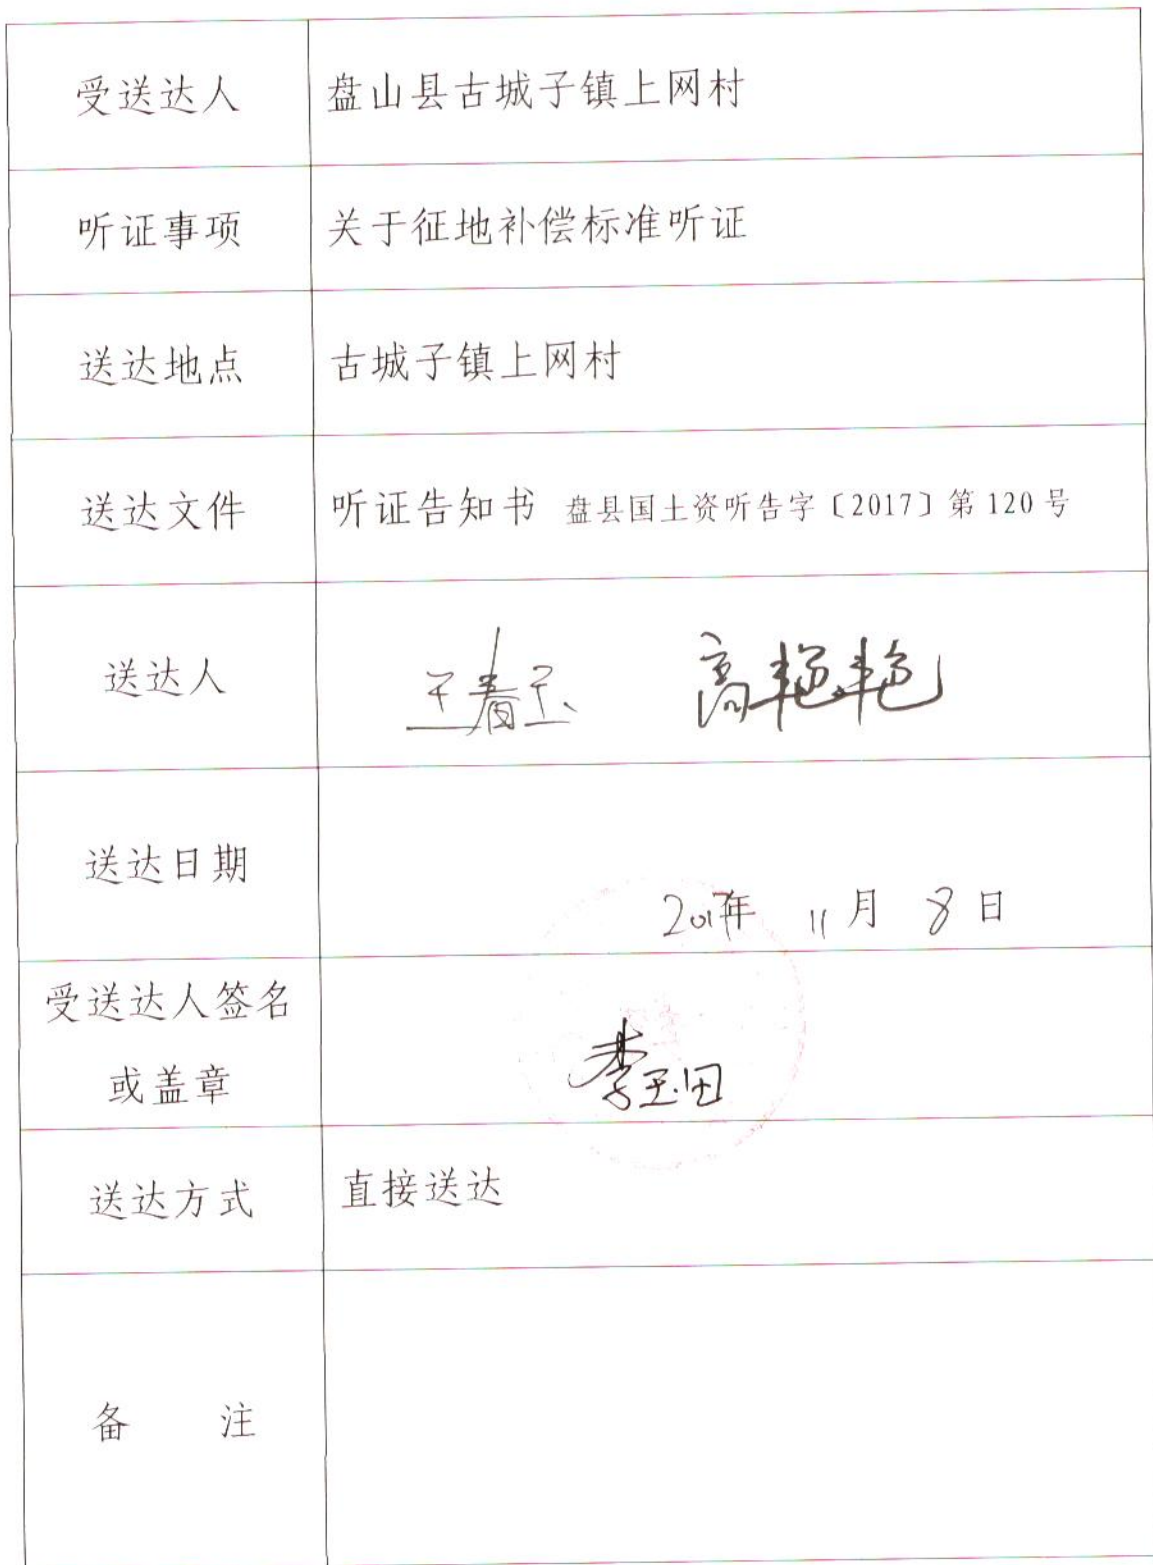 受送达人
盘山县古城子镇上网村
听证事项
关于征地补偿标准听证
送达地点
古城子镇上网村
送达文件
听证告知书 盘县国土资听告字〔2017〕第 120 号
送达人
王春玉 高艳艳
送达日期
2017年 11 月 8 日
受送达人签名
或盖章
李玉田
送达方式
直接送达
备 注